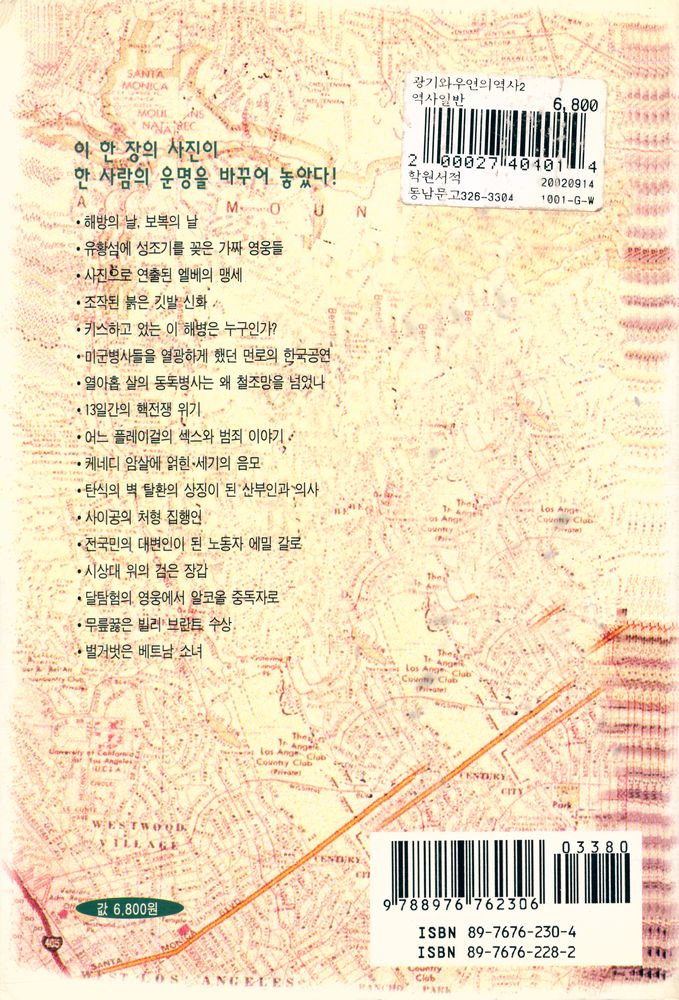 광기와우연의역사2
역사일반
6,800
2 000027 404014
학원서적
20020914
동남문고326-3304
1001-G-W
SANTA
MONICA
이 한 장의 사진이
한 사람의 운명을 바꾸어 놓았다!
M O U N
• 해방의 날, 보복의 날
• 유황섬에 성조기를 꽂은 가짜 영웅들
• 사진으로 연출된 엘베의 맹세
• 조작된 붉은 깃발 신화
• 키스하고 있는 이 해병은 누구인가?
• 미군병사들을 열광하게 했던 먼로의 한국공연
• 열아홉 살의 동독병사는 왜 철조망을 넘었나
• 13일간의 핵전쟁 위기
• 어느 플레이걸의 섹스와 범죄 이야기
• 케네디 암살에 얽힌 세기의 음모
• 탄식의 벽 탈환의 상징이 된 산부인과 의사
• 사이공의 처형 집행인
• 전국민의 대변인이 된 노동자 에밀 갈로
• 시상대 위의 검은 장갑
• 달탐험의 영웅에서 알코올 중독자로
• 무릎꿇은 빌리 브란트 수상
• 벌거벗은 베트남 소녀
Los Angeles
Country Club
(Private)
University of California
Los Angeles
U C L A
CENTURY
CITY
Park
WESTWOOD
VILLAGE
CENTURY
값 6,800원
405
SANTA
LOS ANGELES
RANCHO PARK
03380
9 788976 762306
ISBN 89-7676-230-4
ISBN 89-7676-228-2